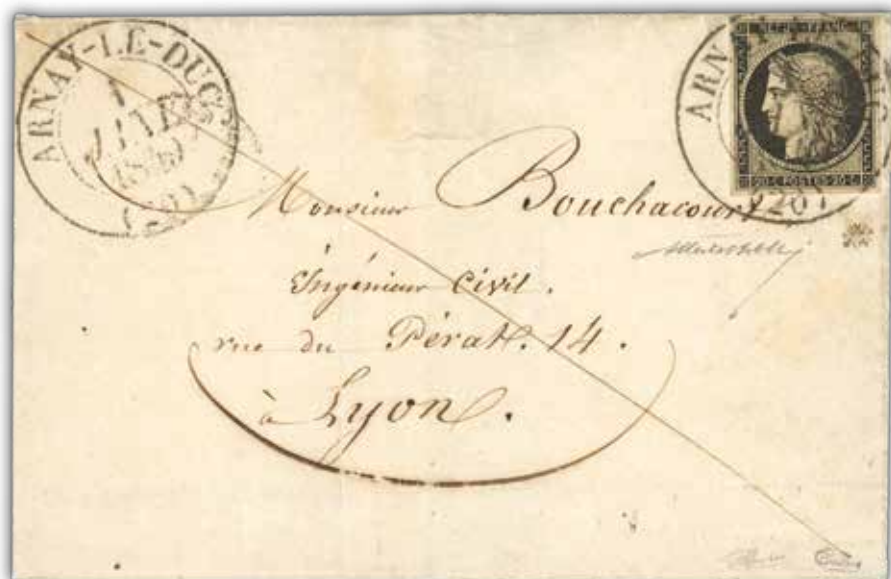 ARNAY-LE-DUC
1
JANV.
1849
(20)
ARN
20 · C · POSTES · 20 · C
(20)
Monsieur Bouchacourt
Ingénieur Civil.
rue du Pérat. 14.
à Lyon.